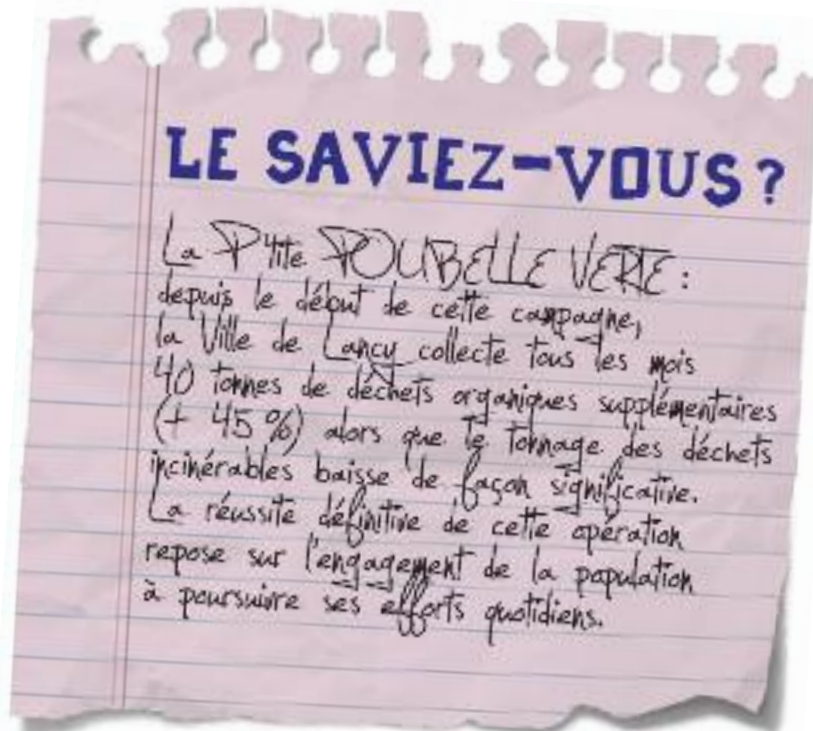 LE SAVIEZ-VOUS?
La P'tite POUBELLE VERTE :
depuis le début de cette campagne,
la Ville de Lancy collecte tous les mois
40 tonnes de déchets organiques supplémentaires
(+ 45 %) alors que le tonnage des déchets
incinérables baisse de façon significative.
La réussite définitive de cette opération
repose sur l'engagement de la population
à poursuivre ses efforts quotidiens.